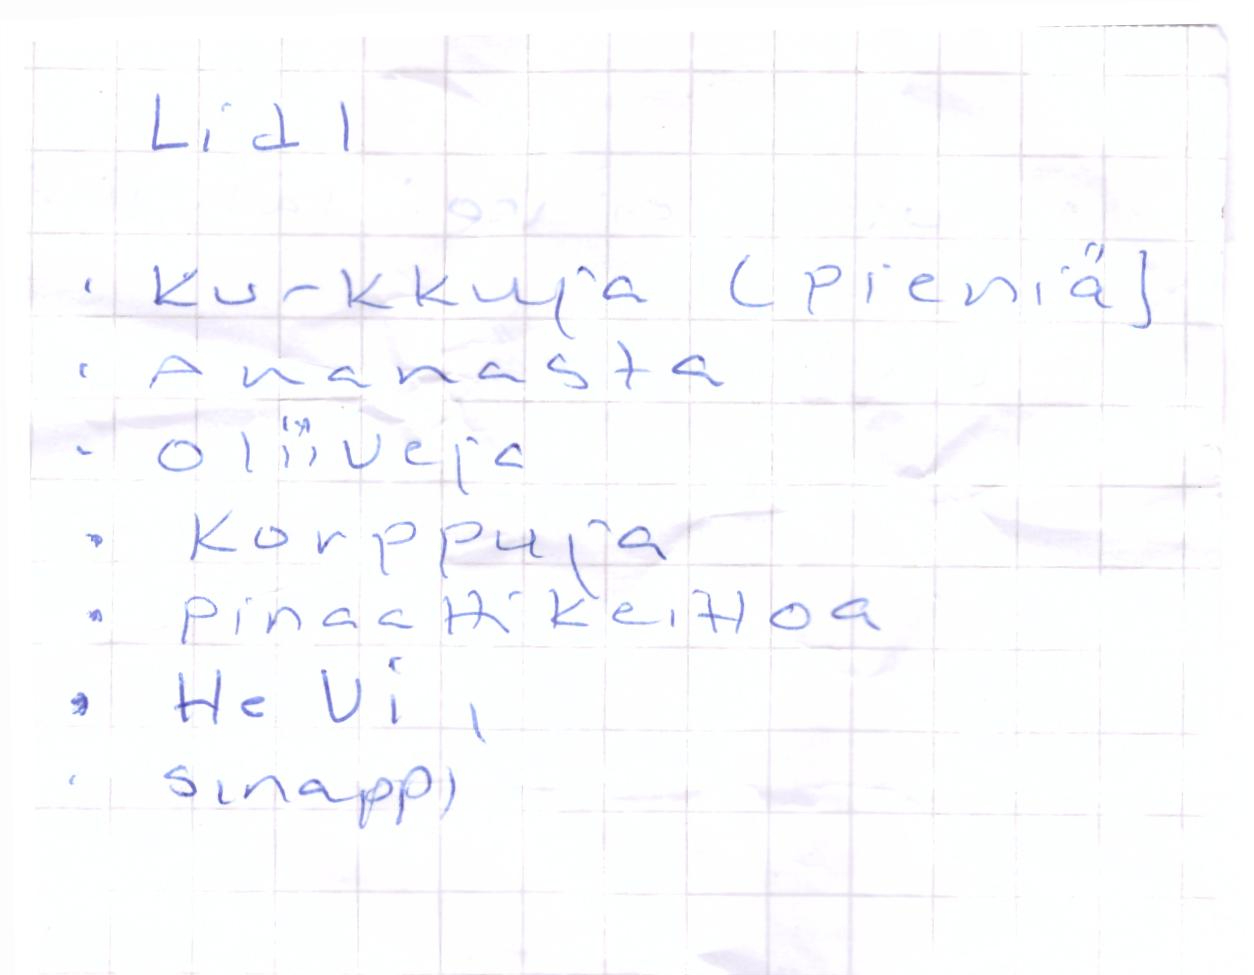 Lidl
· Kurkkuja (pieniä]
· Ananasta
· oliiveja
· korppuja
· pinaattikeittoa
· HeVi,
· sinappi